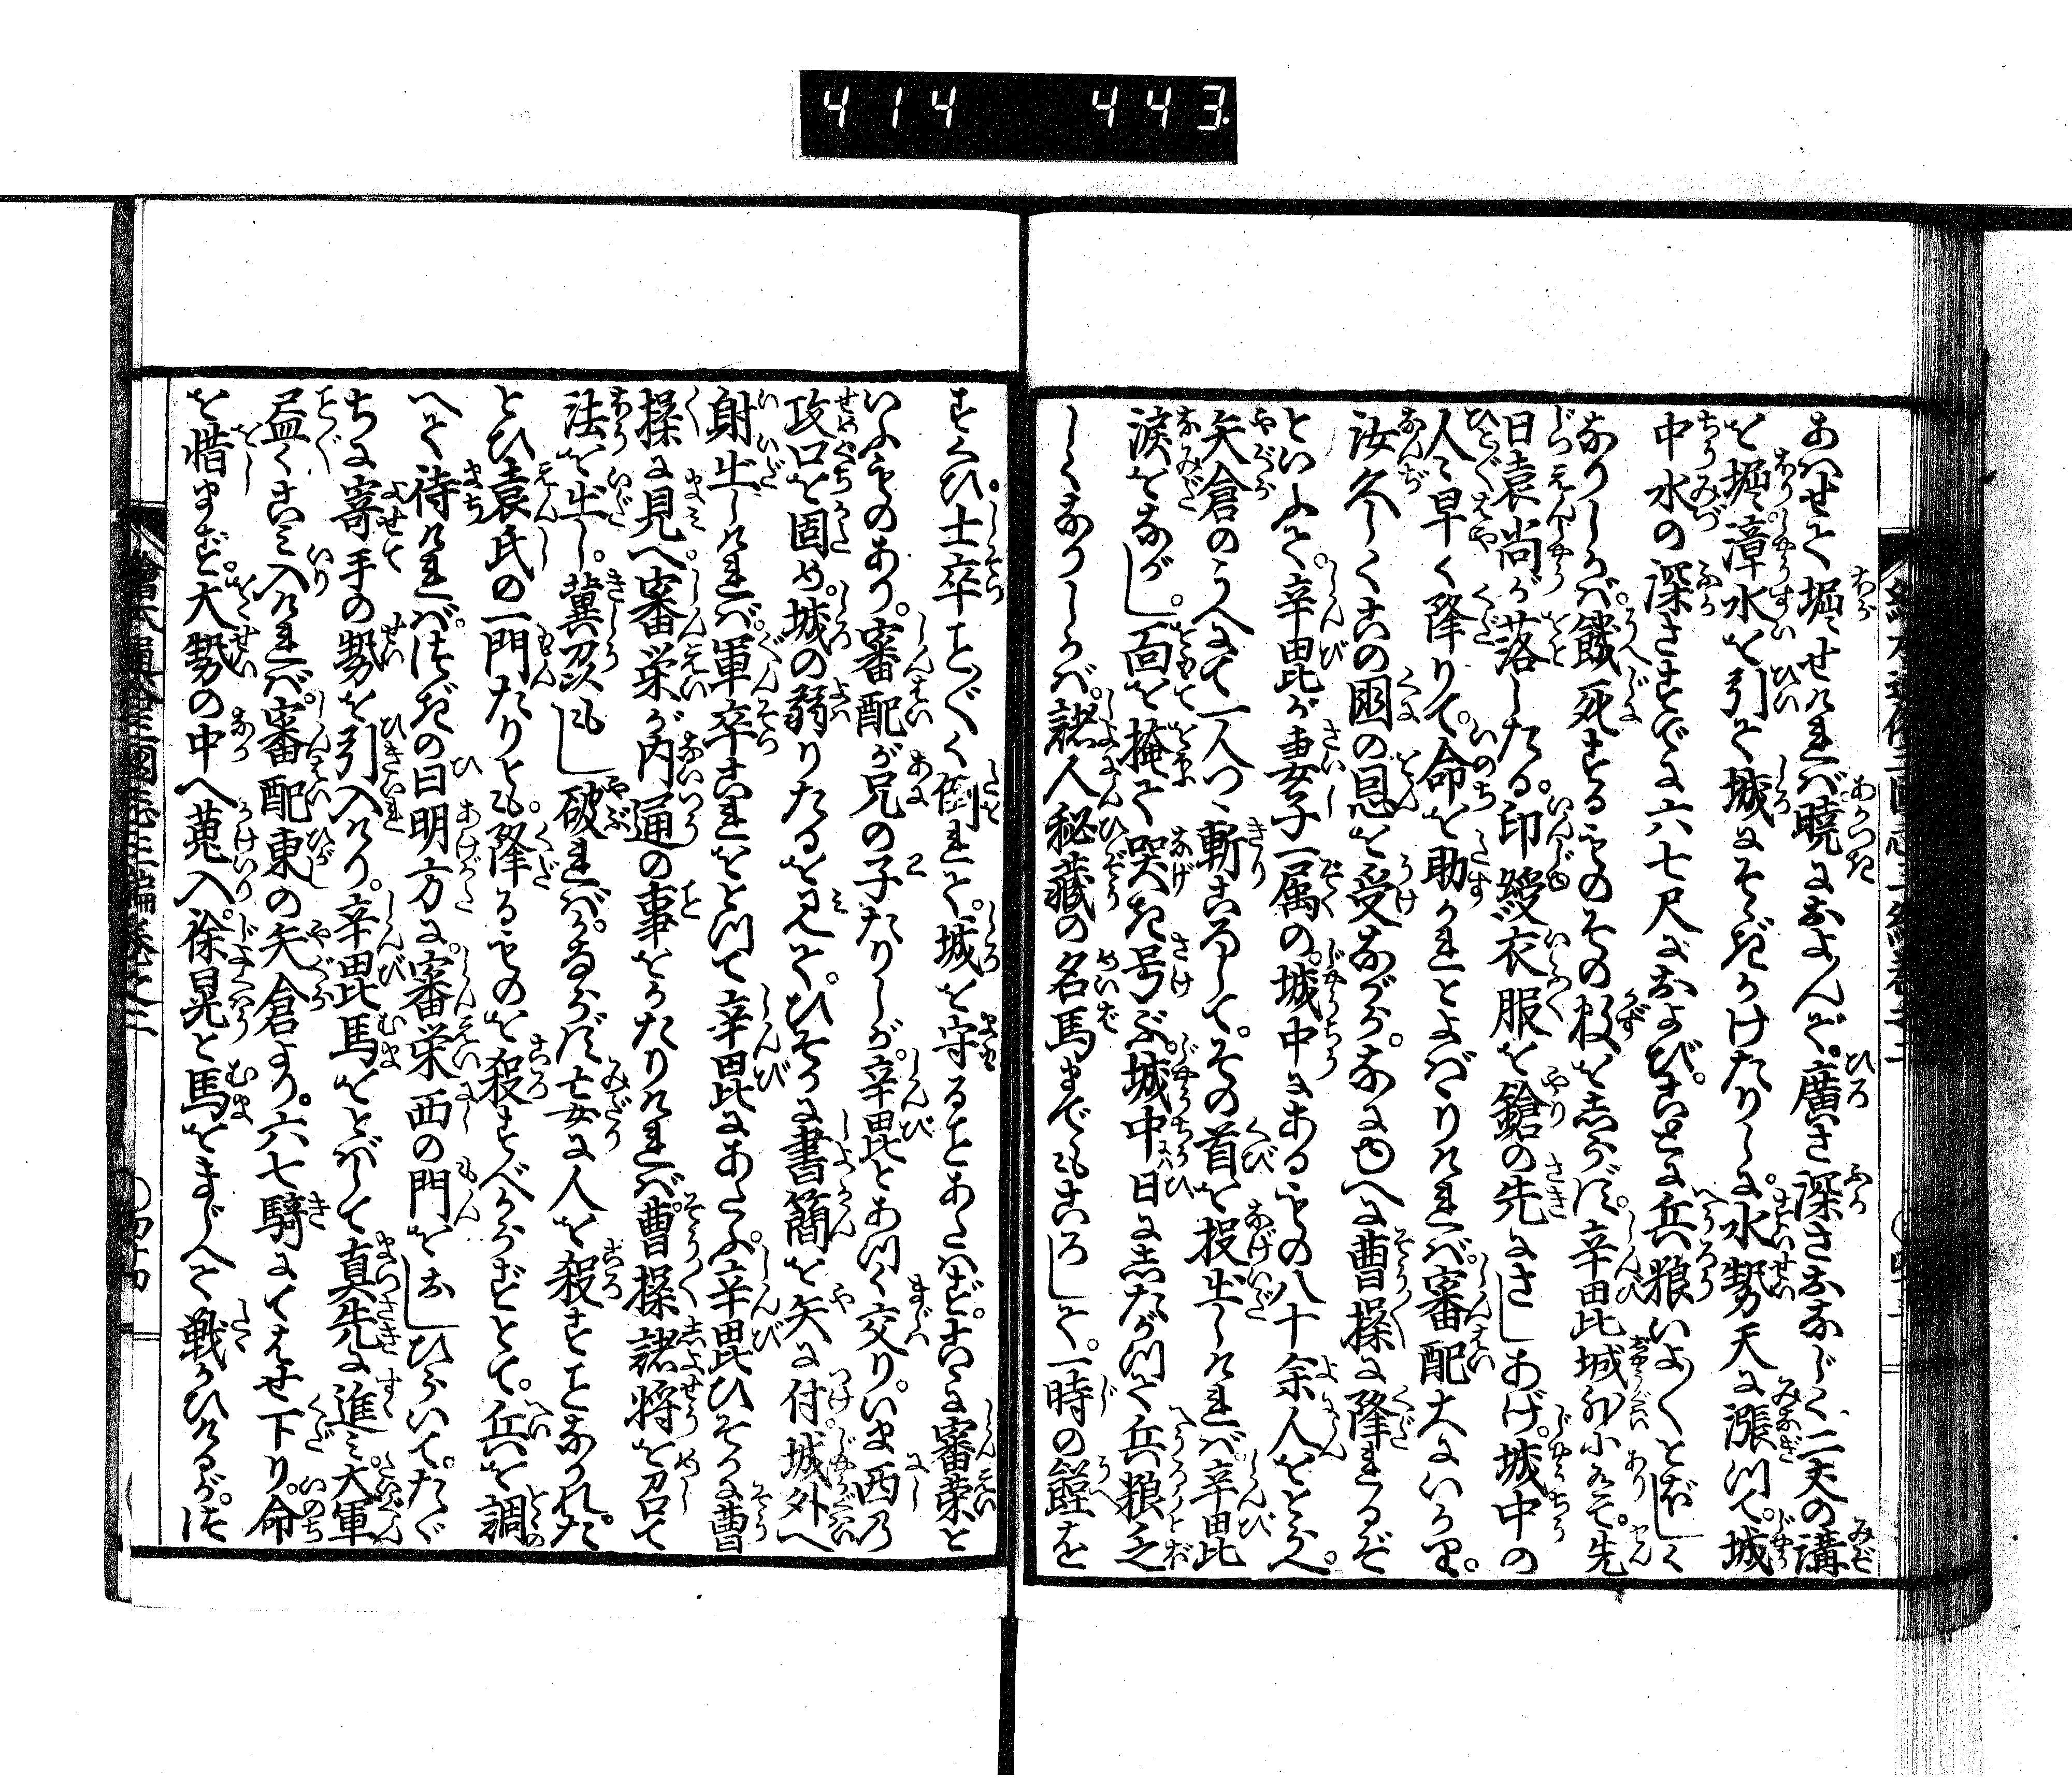 414 443
あハせて堀せけれバ暁におよんで廣さ深さおなじく二丈の溝
を堀漳水を引て城にそゝぎかけたりしに水勢天に漲つて城
中水の深さすでに六七尺におよびことに兵粮いよ〱とぼしく
なりしかバ餓死するものその数をしらず辛毗城外にありて先
日袁尚が落したる印綬衣服を鎗の先にさしあげ城中の
人〻早く降りて命を助かれとよばゝりけれバ審配大にいかり
汝久しくこの国の恩を受ながらなにゆへに曹操に降れるぞ
といふて辛毗が妻子一属の城中にあるもの八十余人をとらへ
矢倉のうへにて一人づゝ斬ころしてその首を投出しけれバ辛毗
涙をながし面を掩て哭き号ぶ城中日にしたがつて兵粮乏
しくなりしかバ諸人秘蔵の名馬までもころして一時の饉を
すくひ士卒こと〲く倒れて城を守ることあたハずこゝに審栄と
いふものあり審配が兄の子たりしが辛毗とあつく交りいま西の
攻口を固め城の弱りたるを見てひそかに書簡を矢に付城外へ
射出しけれバ軍卒これをとつて辛毗にあたふ辛毗ひそかに曹
操に見へ審栄が内通の事をかたりけれバ曹操諸将を召て
法を出し冀州もし破れバかならず妄に人を殺すことなかれた
とひ袁氏の一門たりとも降るものを殺すべからずとて兵を調
へて待けれバ次の日明方に審栄西の門をおしひらいてたゞ
ちに寄手の勢を引入けり辛毗馬をとばして真先に進ミ大軍
尽くこミ入けれバ審配東の矢倉より六七騎にてはせ下り命
を惜まず大勢の中へ蒐入徐晃と馬をまじへて戦かひけるが